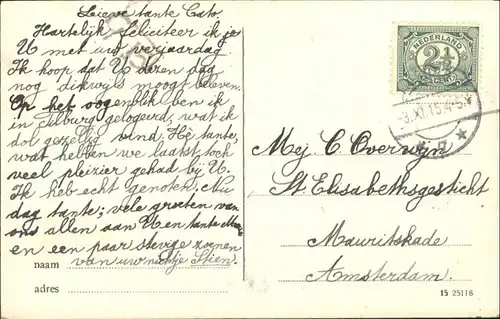 Lieve tante Cato.
Hartelijk feliciteer ik je
U met uw verjaardag
Ik hoop dat U dezen dag
nog dikwijls moogt beleven.
Op het oogenblik ben ik
in Tilburg gelogeerd, wat ik
dol gezellig vind. Hè tante,
wat hebben we laatst toch
veel pleizier gehad bij U.
Ik heb echt genoten. Nu
dag tante; vele groeten van
ons allen aan U en tante
en een paar stevige zoenen
van uw nichtje Stien.
naam
adres
NEDERLAND
2½
CENT
Mej. C Overwijn
St. Elisabethsgesticht
Mauritskade
Amsterdam.
15 25118